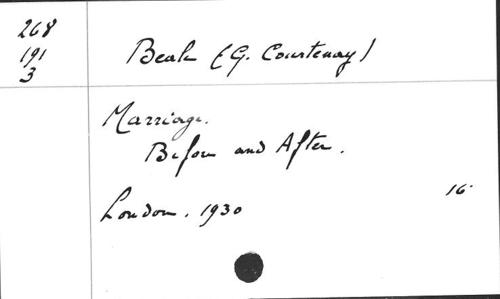 268
191
3
Beale (G. Courtenay)
Marriage.
Before and After.
London. 1930
16